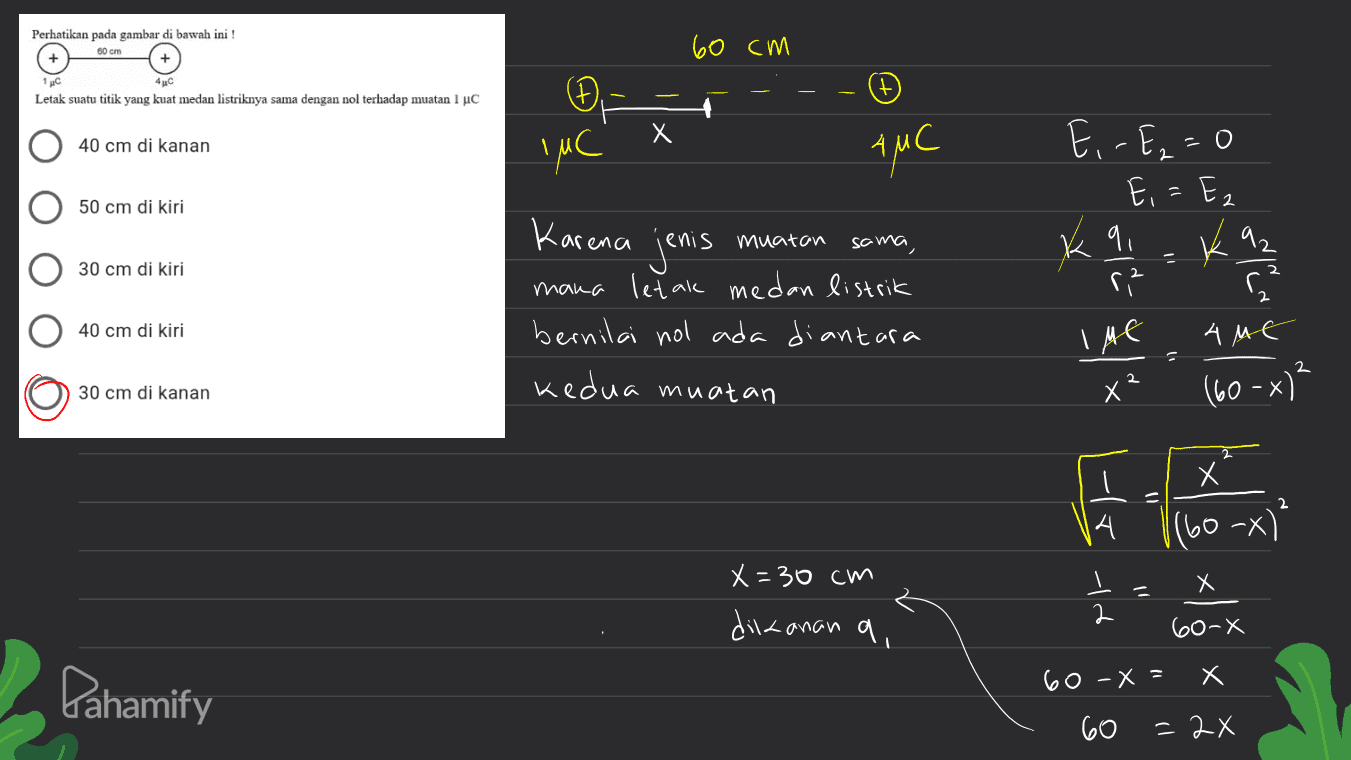 Perhatikan pada gambar di bawah ini !
60 cm
+ +
1 µC 4 µC
Letak suatu titik yang kuat medan listriknya sama dengan nol terhadap muatan 1 µC
40 cm di kanan
50 cm di kiri
30 cm di kiri
40 cm di kiri
30 cm di kanan
60 cm
+ +
1 µC x 4 µC
Karena jenis muatan sama,
maka letak medan listrik
bernilai nol ada diantara
kedua muatan
E₁ - E₂ = 0
E₁ = E₂
K q₁/r₁² = K q₂/r₂²
1 µC/x² = 4 µC/(60-x)²
√(1/4) = √(x²/(60-x)²)
1/2 = x/(60-x)
60 - x = x
60 = 2x
x = 30 cm
dikanan q₁
Pahamify